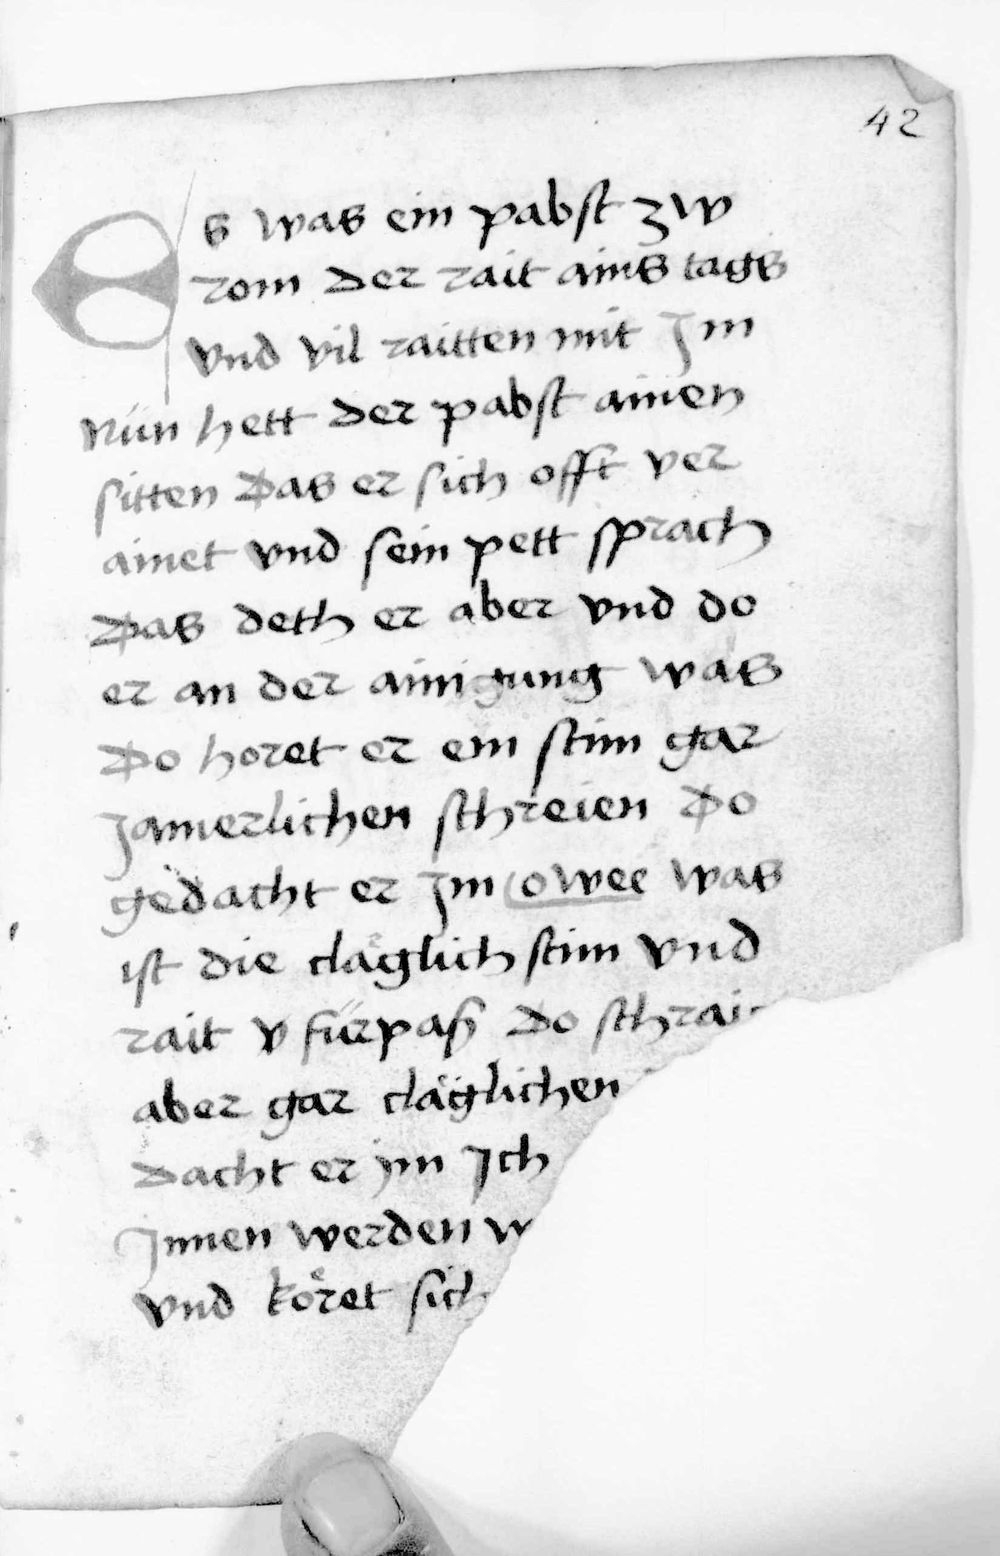 42
Es was ein pabst zw
rom der rait ains tags
vnd vil raitten mit Im
Nün hett der pabst ainen
sitten Das er sich offt ver
ainet vnd sein pett sprach
Das deth er aber vnd do
er an der ainigung was
Do horet er ein stim gar
Jamerlichen schreien Do
gedacht er Im owee was
ist die cläglich stim vnd
rait v fürpaß Do schrai
aber gar cläglichen
dacht er im Ich
Innen werden w
vnd köret sich